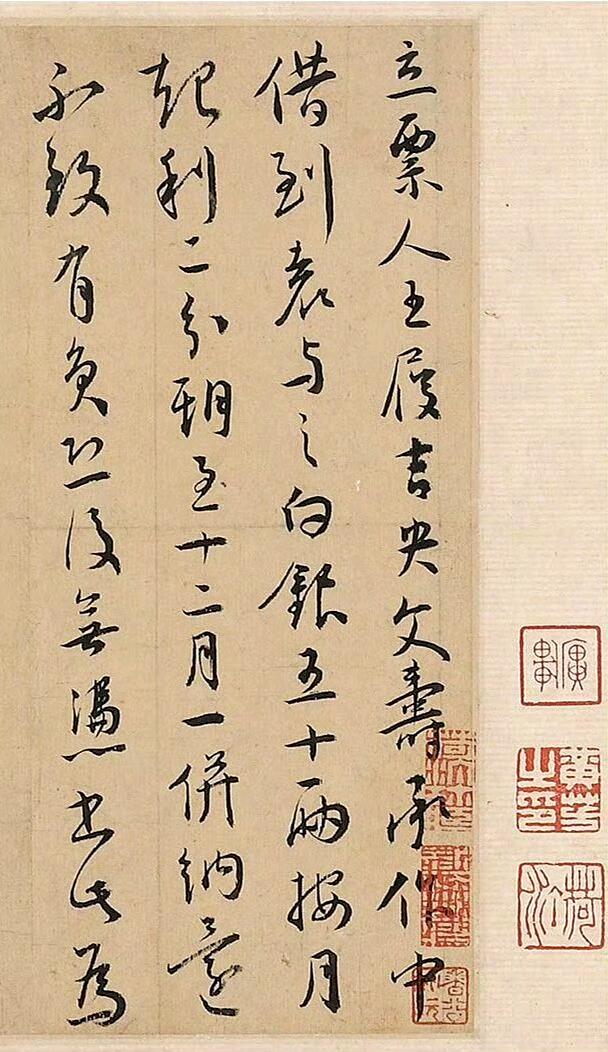 立票人王履吉央文壽承作中
借到袁与之白銀五十兩按月
起利二分期至十二月一併納還
不致有負恐後無憑書此為